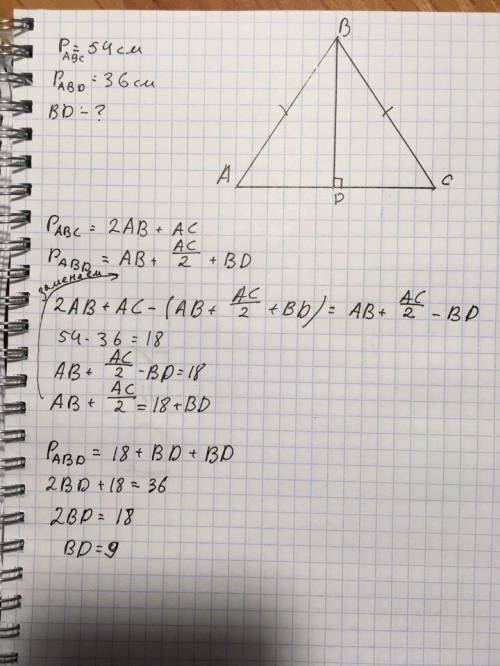 P_ABC = 54 см
P_ABD = 36 см
BD - ?
B
A
C
D
P_ABC = 2AB + AC
P_ABD = AB + AC/2 + BD
заменяем
2AB + AC - (AB + AC/2 + BD) = AB + AC/2 - BD
54 - 36 = 18
AB + AC/2 - BD = 18
AB + AC/2 = 18 + BD
P_ABD = 18 + BD + BD
2BD + 18 = 36
2BD = 18
BD = 9